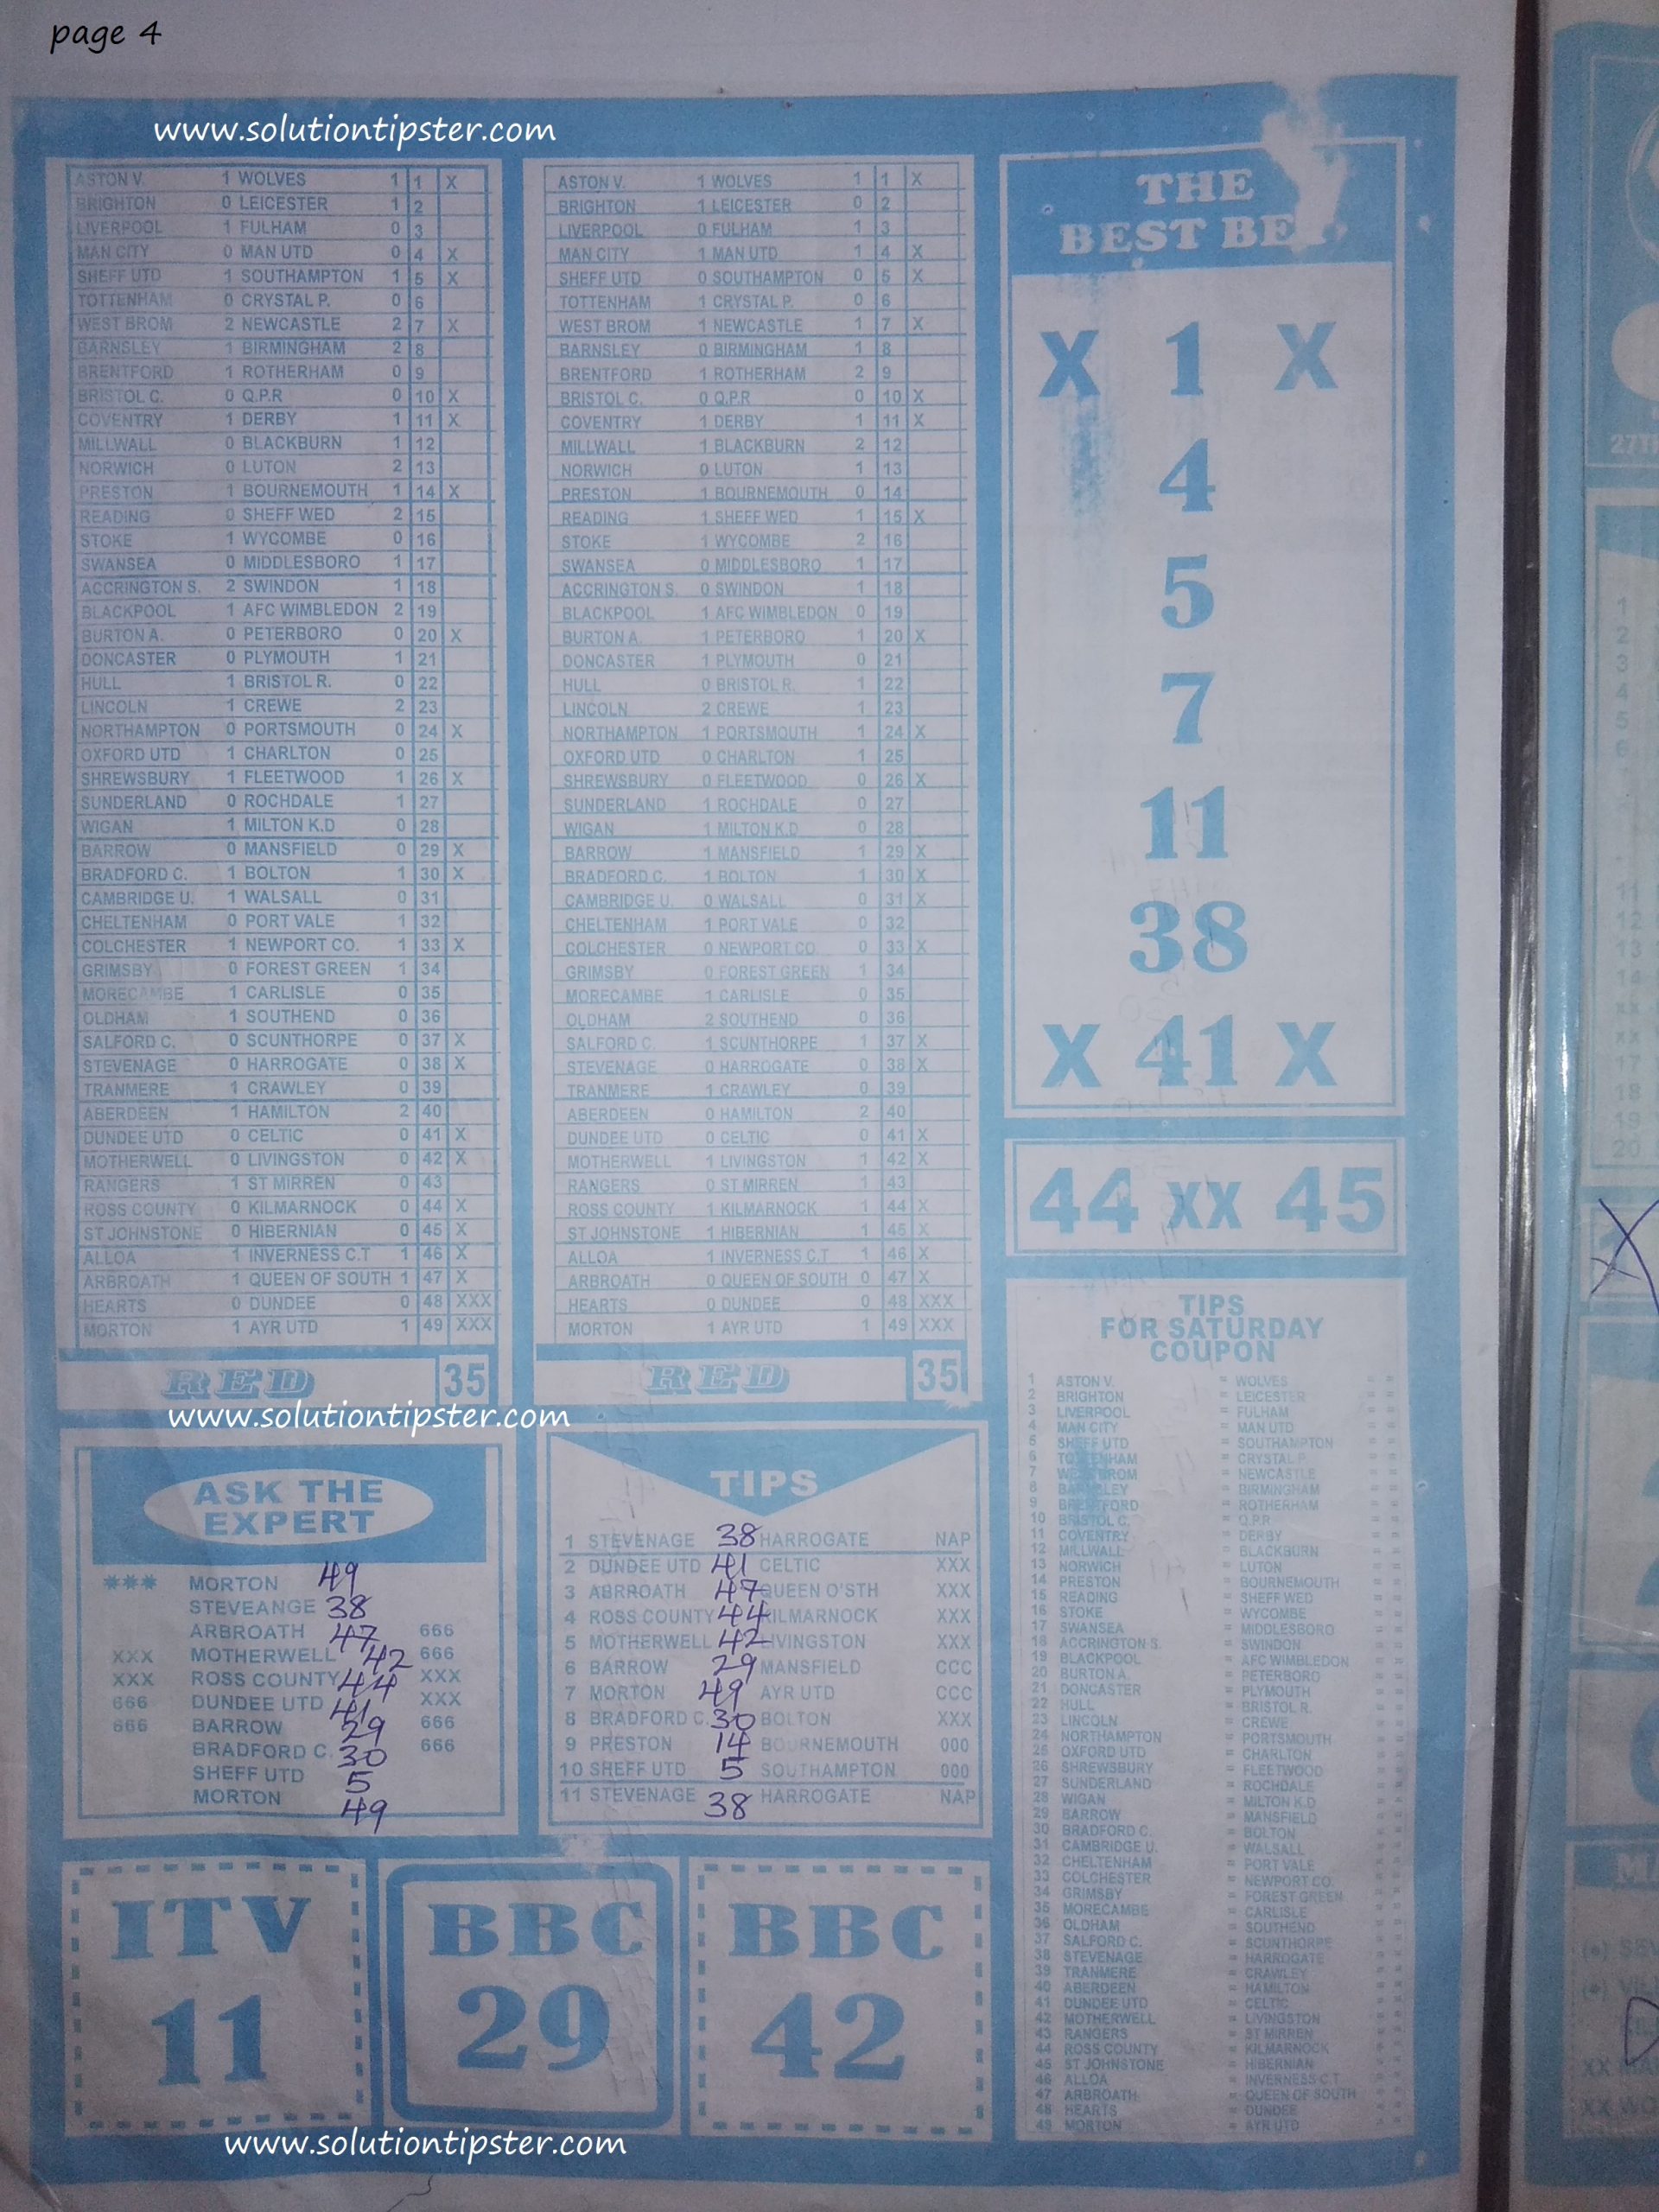 page 4
www.solutiontipster.com
ASTON V. 1 WOLVES 1 1 X
BRIGHTON 0 LEICESTER 1 2
LIVERPOOL 1 FULHAM 0 3
MAN CITY 0 MAN UTD 0 4 X
SHEFF UTD 1 SOUTHAMPTON 1 5 X
TOTTENHAM 0 CRYSTAL P. 0 6
WEST BROM 2 NEWCASTLE 2 7 X
BARNSLEY 1 BIRMINGHAM 2 8
BRENTFORD 1 ROTHERHAM 0 9
BRISTOL C. 0 Q.P.R 0 10 X
COVENTRY 1 DERBY 1 11 X
MILLWALL 0 BLACKBURN 1 12
NORWICH 0 LUTON 2 13
PRESTON 1 BOURNEMOUTH 1 14 X
READING 0 SHEFF WED 2 15
STOKE 1 WYCOMBE 0 16
SWANSEA 0 MIDDLESBORO 1 17
ACCRINGTON S. 2 SWINDON 1 18
BLACKPOOL 1 AFC WIMBLEDON 2 19
BURTON A. 0 PETERBORO 0 20 X
DONCASTER 0 PLYMOUTH 1 21
HULL 1 BRISTOL R. 0 22
LINCOLN 1 CREWE 2 23
NORTHAMPTON 0 PORTSMOUTH 0 24 X
OXFORD UTD 1 CHARLTON 0 25
SHREWSBURY 1 FLEETWOOD 1 26 X
SUNDERLAND 0 ROCHDALE 1 27
WIGAN 1 MILTON K.D 0 28
BARROW 0 MANSFIELD 0 29 X
BRADFORD C. 1 BOLTON 1 30 X
CAMBRIDGE U. 1 WALSALL 0 31
CHELTENHAM 0 PORT VALE 1 32
COLCHESTER 1 NEWPORT CO. 1 33 X
GRIMSBY 0 FOREST GREEN 1 34
MORECAMBE 1 CARLISLE 0 35
OLDHAM 1 SOUTHEND 0 36
SALFORD C. 0 SCUNTHORPE 0 37 X
STEVENAGE 0 HARROGATE 0 38 X
TRANMERE 1 CRAWLEY 0 39
ABERDEEN 1 HAMILTON 2 40
DUNDEE UTD 0 CELTIC 0 41 X
MOTHERWELL 0 LIVINGSTON 0 42 X
RANGERS 1 ST MIRREN 0 43
ROSS COUNTY 0 KILMARNOCK 0 44 X
ST JOHNSTONE 0 HIBERNIAN 0 45 X
ALLOA 1 INVERNESS C.T 1 46 X
ARBROATH 1 QUEEN OF SOUTH 1 47 X
HEARTS 0 DUNDEE 0 48 XXX
MORTON 1 AYR UTD 1 49 XXX
RED 35
ASTON V. 1 WOLVES 1 1 X
BRIGHTON 1 LEICESTER 0 2
LIVERPOOL 0 FULHAM 1 3
MAN CITY 1 MAN UTD 1 4 X
SHEFF UTD 0 SOUTHAMPTON 0 5 X
TOTTENHAM 1 CRYSTAL P. 0 6
WEST BROM 1 NEWCASTLE 1 7 X
BARNSLEY 0 BIRMINGHAM 1 8
BRENTFORD 1 ROTHERHAM 2 9
BRISTOL C. 0 Q.P.R 0 10 X
COVENTRY 1 DERBY 1 11 X
MILLWALL 1 BLACKBURN 2 12
NORWICH 0 LUTON 1 13
PRESTON 1 BOURNEMOUTH 0 14
READING 1 SHEFF WED 1 15 X
STOKE 1 WYCOMBE 2 16
SWANSEA 0 MIDDLESBORO 1 17
ACCRINGTON S. 0 SWINDON 1 18
BLACKPOOL 1 AFC WIMBLEDON 0 19
BURTON A. 1 PETERBORO 1 20 X
DONCASTER 1 PLYMOUTH 0 21
HULL 0 BRISTOL R. 1 22
LINCOLN 2 CREWE 1 23
NORTHAMPTON 1 PORTSMOUTH 1 24 X
OXFORD UTD 0 CHARLTON 1 25
SHREWSBURY 0 FLEETWOOD 0 26 X
SUNDERLAND 1 ROCHDALE 0 27
WIGAN 1 MILTON K.D 0 28
BARROW 1 MANSFIELD 1 29 X
BRADFORD C. 1 BOLTON 1 30 X
CAMBRIDGE U. 0 WALSALL 0 31 X
CHELTENHAM 1 PORT VALE 0 32
COLCHESTER 0 NEWPORT CO. 0 33 X
GRIMSBY 0 FOREST GREEN 1 34
MORECAMBE 1 CARLISLE 0 35
OLDHAM 2 SOUTHEND 0 36
SALFORD C. 1 SCUNTHORPE 1 37 X
STEVENAGE 0 HARROGATE 0 38 X
TRANMERE 1 CRAWLEY 0 39
ABERDEEN 0 HAMILTON 2 40
DUNDEE UTD 0 CELTIC 0 41 X
MOTHERWELL 1 LIVINGSTON 1 42 X
RANGERS 0 ST MIRREN 1 43
ROSS COUNTY 1 KILMARNOCK 1 44 X
ST JOHNSTONE 1 HIBERNIAN 1 45 X
ALLOA 1 INVERNESS C.T 1 46 X
ARBROATH 0 QUEEN OF SOUTH 0 47 X
HEARTS 0 DUNDEE 0 48 XXX
MORTON 1 AYR UTD 1 49 XXX
RED 35
THE
BEST BET
X 1 X
4
5
7
11
38
X 41 X
44 XX 45
www.solutiontipster.com
ASK THE
EXPERT
*** MORTON 49
STEVEANGE 38
ARBROATH 47 666
XXX MOTHERWELL 42 666
XXX ROSS COUNTY 44 XXX
666 DUNDEE UTD 41 XXX
666 BARROW 29 666
BRADFORD C. 30 666
SHEFF UTD 5
MORTON 49
TIPS
1 STEVENAGE 38 HARROGATE NAP
2 DUNDEE UTD 41 CELTIC XXX
3 ABRROATH 47 QUEEN O'STH XXX
4 ROSS COUNTY 44 KILMARNOCK XXX
5 MOTHERWELL 42 LIVINGSTON XXX
6 BARROW 29 MANSFIELD CCC
7 MORTON 49 AYR UTD CCC
8 BRADFORD C. 30 BOLTON XXX
9 PRESTON 14 BOURNEMOUTH 000
10 SHEFF UTD 5 SOUTHAMPTON 000
11 STEVENAGE 38 HARROGATE NAP
TIPS
FOR SATURDAY
COUPON
1 ASTON V. = WOLVES = =
2 BRIGHTON = LEICESTER = =
3 LIVERPOOL = FULHAM = =
4 MAN CITY = MAN UTD = =
5 SHEFF UTD = SOUTHAMPTON = =
6 TOTTENHAM = CRYSTAL P. = =
7 WEST BROM = NEWCASTLE = =
8 BARNSLEY = BIRMINGHAM = =
9 BRENTFORD = ROTHERHAM = =
10 BRISTOL C. = Q.P.R = =
11 COVENTRY = DERBY = =
12 MILLWALL = BLACKBURN = =
13 NORWICH = LUTON = =
14 PRESTON = BOURNEMOUTH = =
15 READING = SHEFF WED = =
16 STOKE = WYCOMBE = =
17 SWANSEA = MIDDLESBORO = =
18 ACCRINGTON S. = SWINDON = =
19 BLACKPOOL = AFC WIMBLEDON = =
20 BURTON A. = PETERBORO = =
21 DONCASTER = PLYMOUTH = =
22 HULL = BRISTOL R. = =
23 LINCOLN = CREWE = =
24 NORTHAMPTON = PORTSMOUTH = =
25 OXFORD UTD = CHARLTON = =
26 SHREWSBURY = FLEETWOOD = =
27 SUNDERLAND = ROCHDALE = =
28 WIGAN = MILTON K.D = =
29 BARROW = MANSFIELD = =
30 BRADFORD C. = BOLTON = =
31 CAMBRIDGE U. = WALSALL = =
32 CHELTENHAM = PORT VALE = =
33 COLCHESTER = NEWPORT CO. = =
34 GRIMSBY = FOREST GREEN = =
35 MORECAMBE = CARLISLE = =
36 OLDHAM = SOUTHEND = =
37 SALFORD C. = SCUNTHORPE = =
38 STEVENAGE = HARROGATE = =
39 TRANMERE = CRAWLEY = =
40 ABERDEEN = HAMILTON = =
41 DUNDEE UTD = CELTIC = =
42 MOTHERWELL = LIVINGSTON = =
43 RANGERS = ST MIRREN = =
44 ROSS COUNTY = KILMARNOCK = =
45 ST JOHNSTONE = HIBERNIAN = =
46 ALLOA = INVERNESS C.T = =
47 ARBROATH = QUEEN OF SOUTH = =
48 HEARTS = DUNDEE = =
49 MORTON = AYR UTD = =
ITV
11
BBC
29
BBC
42
www.solutiontipster.com